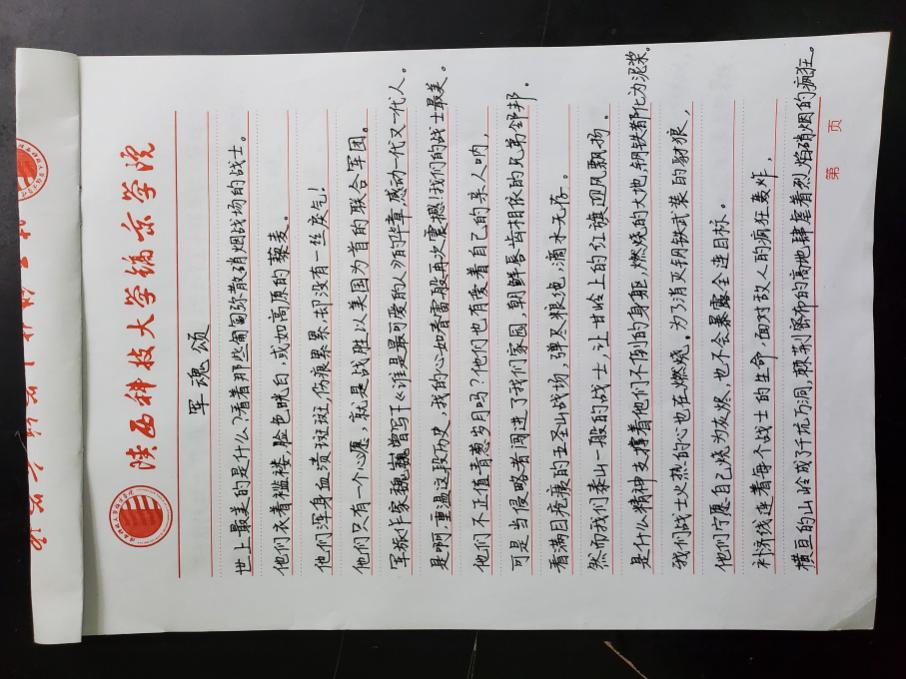 陕西科技大学镐京学院
军魂颂
世上最美的是什么?看看那些匍匐弥背硝烟战场的战士。
他们衣着褴褛,脸色咣白,或如高原的藜麦。
他们浑身血渍斑斑,伤痕累累却没有一丝戾气!
他们只有一个心愿,就是战胜以美国为首的联合军团。
军旅作家魏巍曾写下《谁是最可爱的人》的华章,感动一代又一代人。
是啊,重温这段历史,我的心如春雷般再次震撼!我们的战士最美。
他们不正值青葱岁月吗?他们也有爱着自己的亲人呐,
可是当侵略者调进了我们家园,朝鲜唇齿相依的兄弟邻邦。
看满目疮痍的五圣山战场,弹尽粮绝,滴水无存。
然而我们泰山一般的战士,让甘岭上的红旗迎风飘扬。
是什么精神支撑着他们不倒的身躯,燃烧的大地,钢铁都化为泥浆。
我们战士火热的心也在燃烧。为了消灭钢铁武装的豺狼,
他们宁愿自己烧为灰烬,也不会暴露全连目标。
补济线连着每个战士的生命,面对敌人的疯狂轰炸,
横亘的山岭成了千坑万洞,棘荆密布的高地肆虐着烈焰硝烟的疯狂。
第 页